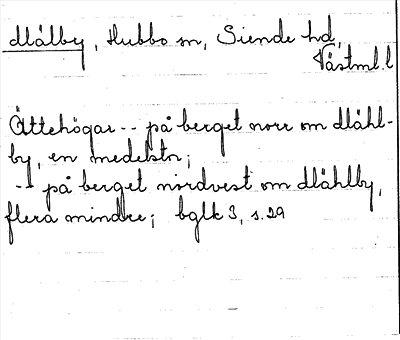 Målby, Hubbo sn, Siende hd,
Västml. l
Ättehögar -- på berget norr om Måhl-
by, en medelstor;
-- på berget nordvest om Måhlby,
flera mindre; bglk 3, s. 29